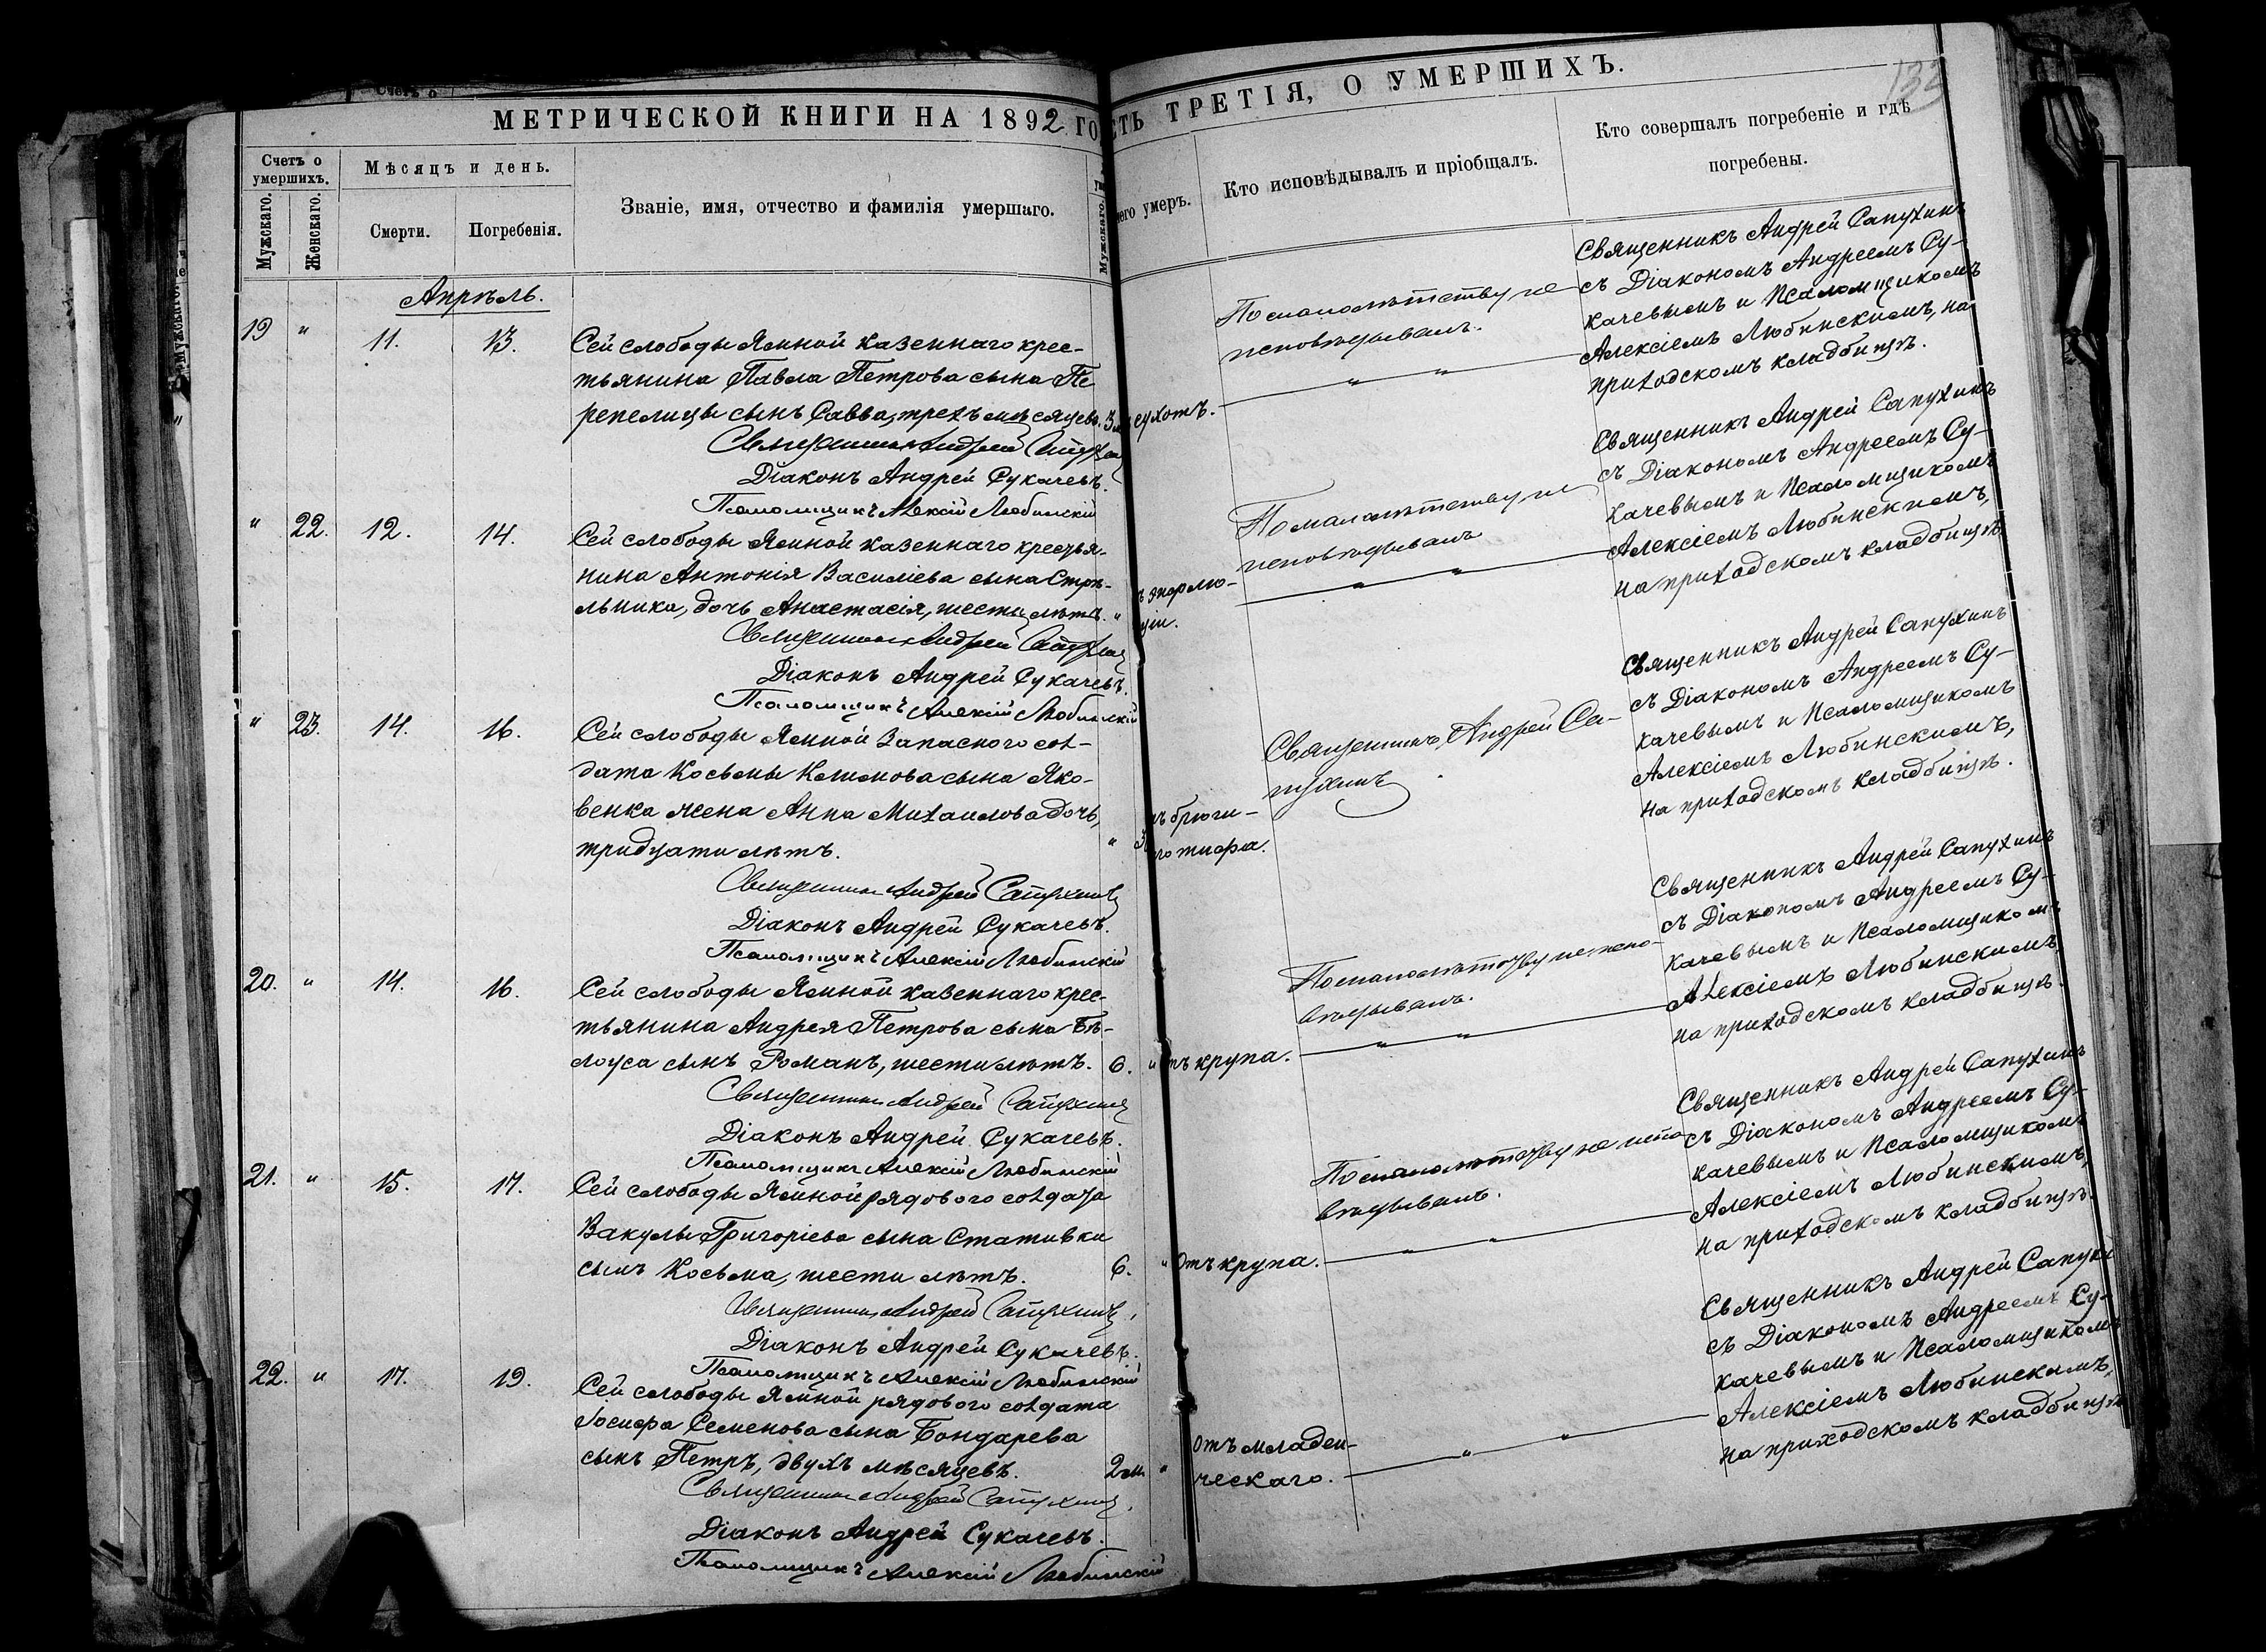 МЕТРИЧЕСКОЙ КНИГИ НА 1892 ГО
Счетъ о умершихъ.
Мужскаго.
Женскаго.
Мѣсяцъ и день.
Смерти.
Погребенія.
Званіе, имя, отчество и фамилія умершаго.
Мужскаго.
Апрѣль.
19 " 11. 13.
Сей слободы Ямной казеннаго крес-
тьянина Павла Петрова сына Пе
репелицы сынъ Савва, трехъ мѣсяцевъ. 3м
Священникъ Андрей Сапухинъ
Діаконъ Андрей Сукачевъ.
Псаломщикъ Алексій Любинскій
" 22. 12. 14.
Сей слободы Ямной казеннаго крестья-
нина Антонія Василіева сына Стрѣ-
льника, дочь Анастасія, шести лѣтъ. "
Священникъ Андрей Сапухинъ
Діаконъ Андрей Сукачевъ.
Псаломщикъ Алексій Любинскій
" 23. 14. 16.
Сей слободы Ямной запасного сол-
дата Косьмы Климова сына Яко-
венка жена Анна Михаилова дочь,
тридцати лѣтъ. "
Священникъ Андрей Сапухинъ
Діаконъ Андрей Сукачевъ.
Псаломщикъ Алексій Любинскій
20. " 14. 16.
Сей слободы Ямной казеннаго крес-
тьянина Андрея Петрова сына Бѣ-
лоуса сынъ Романъ, шести лѣтъ. 6. "
Священникъ Андрей Сапухинъ
Діаконъ Андрей Сукачевъ.
Псаломщикъ Алексій Любинскій
21. " 15. 17.
Сей слободы Ямной рядового солдата
Вакулы Григоріева сына Стативки
сынъ Косьма, шести лѣтъ. 6. "
Священникъ Андрей Сапухинъ
Діаконъ Андрей Сукачевъ.
Псаломщикъ Алексій Любинскій
22. " 17. 19.
Сей слободы Ямной рядового солдата
Іосифа Семенова сына Бондарева
сынъ Петръ, двухъ мѣсяцевъ. 2м. "
Священникъ Андрей Сапухинъ
Діаконъ Андрей Сукачевъ.
Псаломщикъ Алексій Любинскій
СТЬ ТРЕТІЯ, О УМЕРШИХЪ.
его умеръ.
Кто исповѣдывалъ и пріобщалъ.
Кто совершалъ погребеніе и гдѣ
погребены.
сухотъ.
По малолѣтству не
исповѣдыванъ.
Священникъ Андрей Сапухинъ
съ Діакономъ Андреемъ Су-
качевымъ и Псаломщикомъ
Алексіемъ Любинскимъ, на
приходскомъ кладбищѣ.
По малолѣтству не
исповѣдыванъ
Священникъ Андрей Сапухинъ
съ Діакономъ Андреемъ Су-
качевымъ и Псаломщикомъ
Алексіемъ Любинскимъ,
на приходскомъ кладбищѣ.
ъ брюш-
го тифа.
Священникъ Андрей Са-
пухинъ
Священникъ Андрей Сапухинъ
съ Діакономъ Андреемъ Су-
качевымъ и Псаломщикомъ
Алексіемъ Любинскимъ,
на приходскомъ кладбищѣ.
тъ крупа.
По малолѣтству не испо-
вѣдыванъ.
Священникъ Андрей Сапухинъ
съ Діакономъ Андреемъ Су-
качевымъ и Псаломщикомъ
Алексіемъ Любинскимъ
на приходскомъ кладбищѣ.
Отъ крупа.
По малолѣтству не испо
вѣдыванъ.
Священникъ Андрей Сапухинъ
съ Діакономъ Андреемъ Су-
качевымъ и Псаломщикомъ
Алексіемъ Любинскимъ,
на приходскомъ кладбищѣ.
Отъ младен-
ческаго.
Священникъ Андрей Сапухи
съ Діакономъ Андреемъ Су-
качевымъ и Псаломщикомъ
Алексіемъ Любинскимъ,
на приходскомъ кладбищѣ